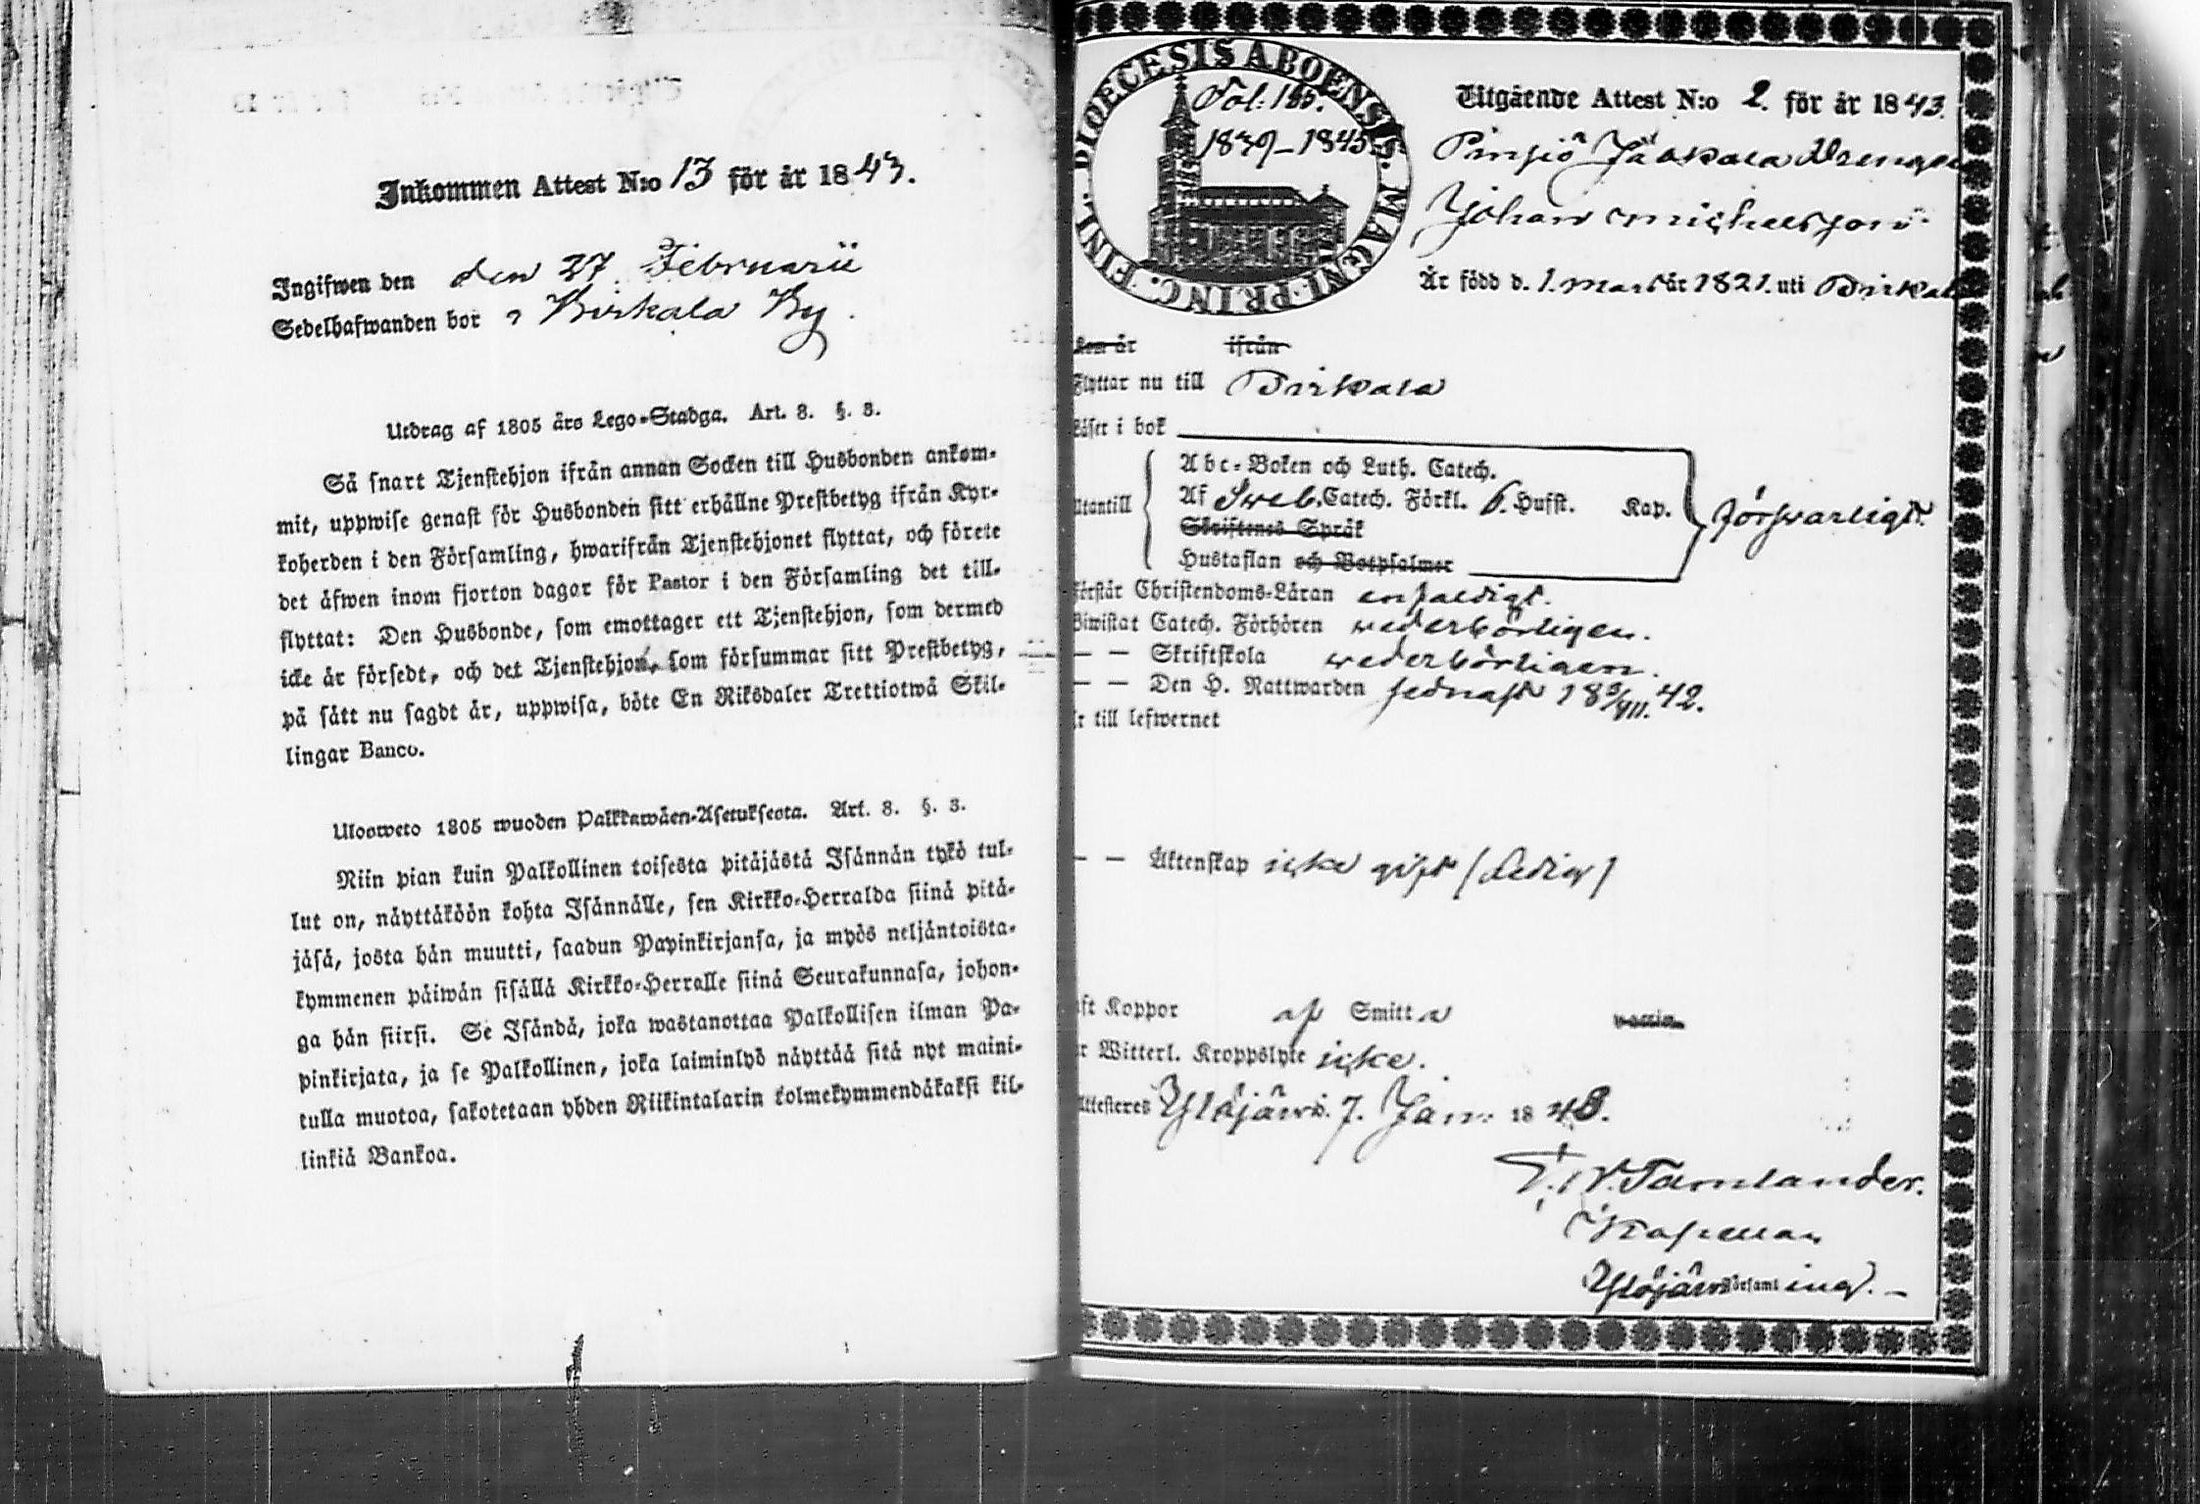 Inkommen Attest N:o 13 för år 1843.
Ingifwen den den 27 Februarii
Sedelhafwanden bor i Birkala By.
Utdrag af 1805 års Lego-Stadga. Art. 8. §. 3.
Så snart Tjenstehjon ifrån annan Socken till Husbonden ankom-
mit, uppwise genast för Husbonden sitt erhållne Prestbetyg ifrån Kyr-
koherden i den Församling, hwarifrån Tjenstehjonet flyttat, och förete
det äfwen inom fjorton dagar för Pastor i den Församling det till-
flyttat: Den Husbonde, som emottager ett Tjenstehjon, som dermed
icke är försedt, och det Tjenstehjon, som försummar sitt Prestbetyg,
på sätt nu sagdt är, uppwisa, böte En Riksdaler Trettiotwå Skil-
lingar Banco.
Uloswето 1805 wuoden Palkkawäen-Asetuksesta. Art. 8. §. 3.
Niin pian kuin Palkollinen toisesta pitäjästä Isännän tykö tul-
lut on, näyttäköön kohta Isännälle, sen Kirkko-Herralda siinä pitä-
jäsä, josta hän muutti, saadun Papinkirjansa, ja myös neljäntoista-
kymmenen päiwän sisällä Kirkko-Herralle siinä Seurakunnasa, johon-
ga hän siirsi. Se Isändä, joka wastanottaa Palkollisen ilman Pa-
pinkirjata, ja se Palkollinen, joka laiminlyö näyttää sitä nyt maini-
tulla muotoa, sakotetaan yhden Riikintalarin kolmekymmendäkaksi kil-
linkiä Bankoa.
DIOECESIS ABOENSIS. MAGNI PRINC. FINL.
Fol: 185.
1839–1845
Utgående Attest N:o 2. för år 1843.
Pinsiö Jaakala Drengen
Johan Michelsson
Är född d. 1. Mars år 1821. uti Birkala
Kom år ifrån
Flyttar nu till Birkala
Läser i bok
Utantill
Abc-Boken och Luth. Catech.
Af Sweb. Catech. Förkl. 6. Hufst. Kap.
försvarligt.
Skriftenes Språk
Hustaflan och Botpsalmer
Förstår Christendoms-Läran enfaldigt.
Biwistat Catech. Förhören wederbörligen.
— — Skriftskola wederbörligen.
— — Den H. Nattwarden sednast 18 3/VII. 42.
Är till lefwernet
— — Äktenskap icke gift (Ledig)
Haft Koppor af Smitta
Är Witterl. Kroppslyte icke.
Attesteres Ylöjärwi. 7. Jan: 1843.
Tamlander.
Kapellan
Ylöjärwi Församling. —